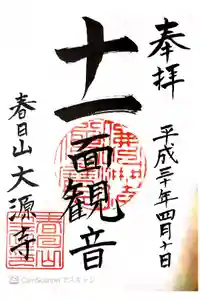 奉拝
平成三十年四月十日
十一面観音
春日山大源寺
CamScannerでスキャン